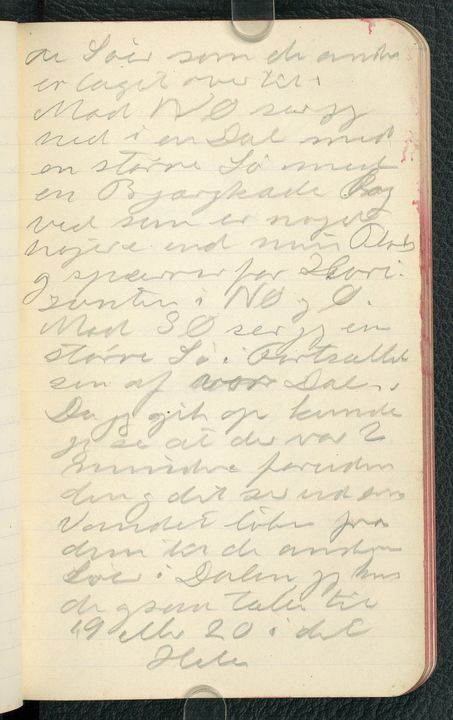 de Söer som de andre
er laget over til.
Mod NØ ser jeg
ned i en Dal med
en større Sö med
en Bjærgkade bag
ved som er noget
højere end min Plads
og spærrer for Hori-
zonten i NØ og Ø.
Mod SØ ser jeg en
större Sö i Fortsættel
sen af vor Dal.
Da jeg gik op kunde
jeg se at der var 2
mindre foruden
den og det ser ud om
Vandet löber fra
dem til de andre
Söer i Dalen jeg
de som taler til
19 eller 20 i det
Hele